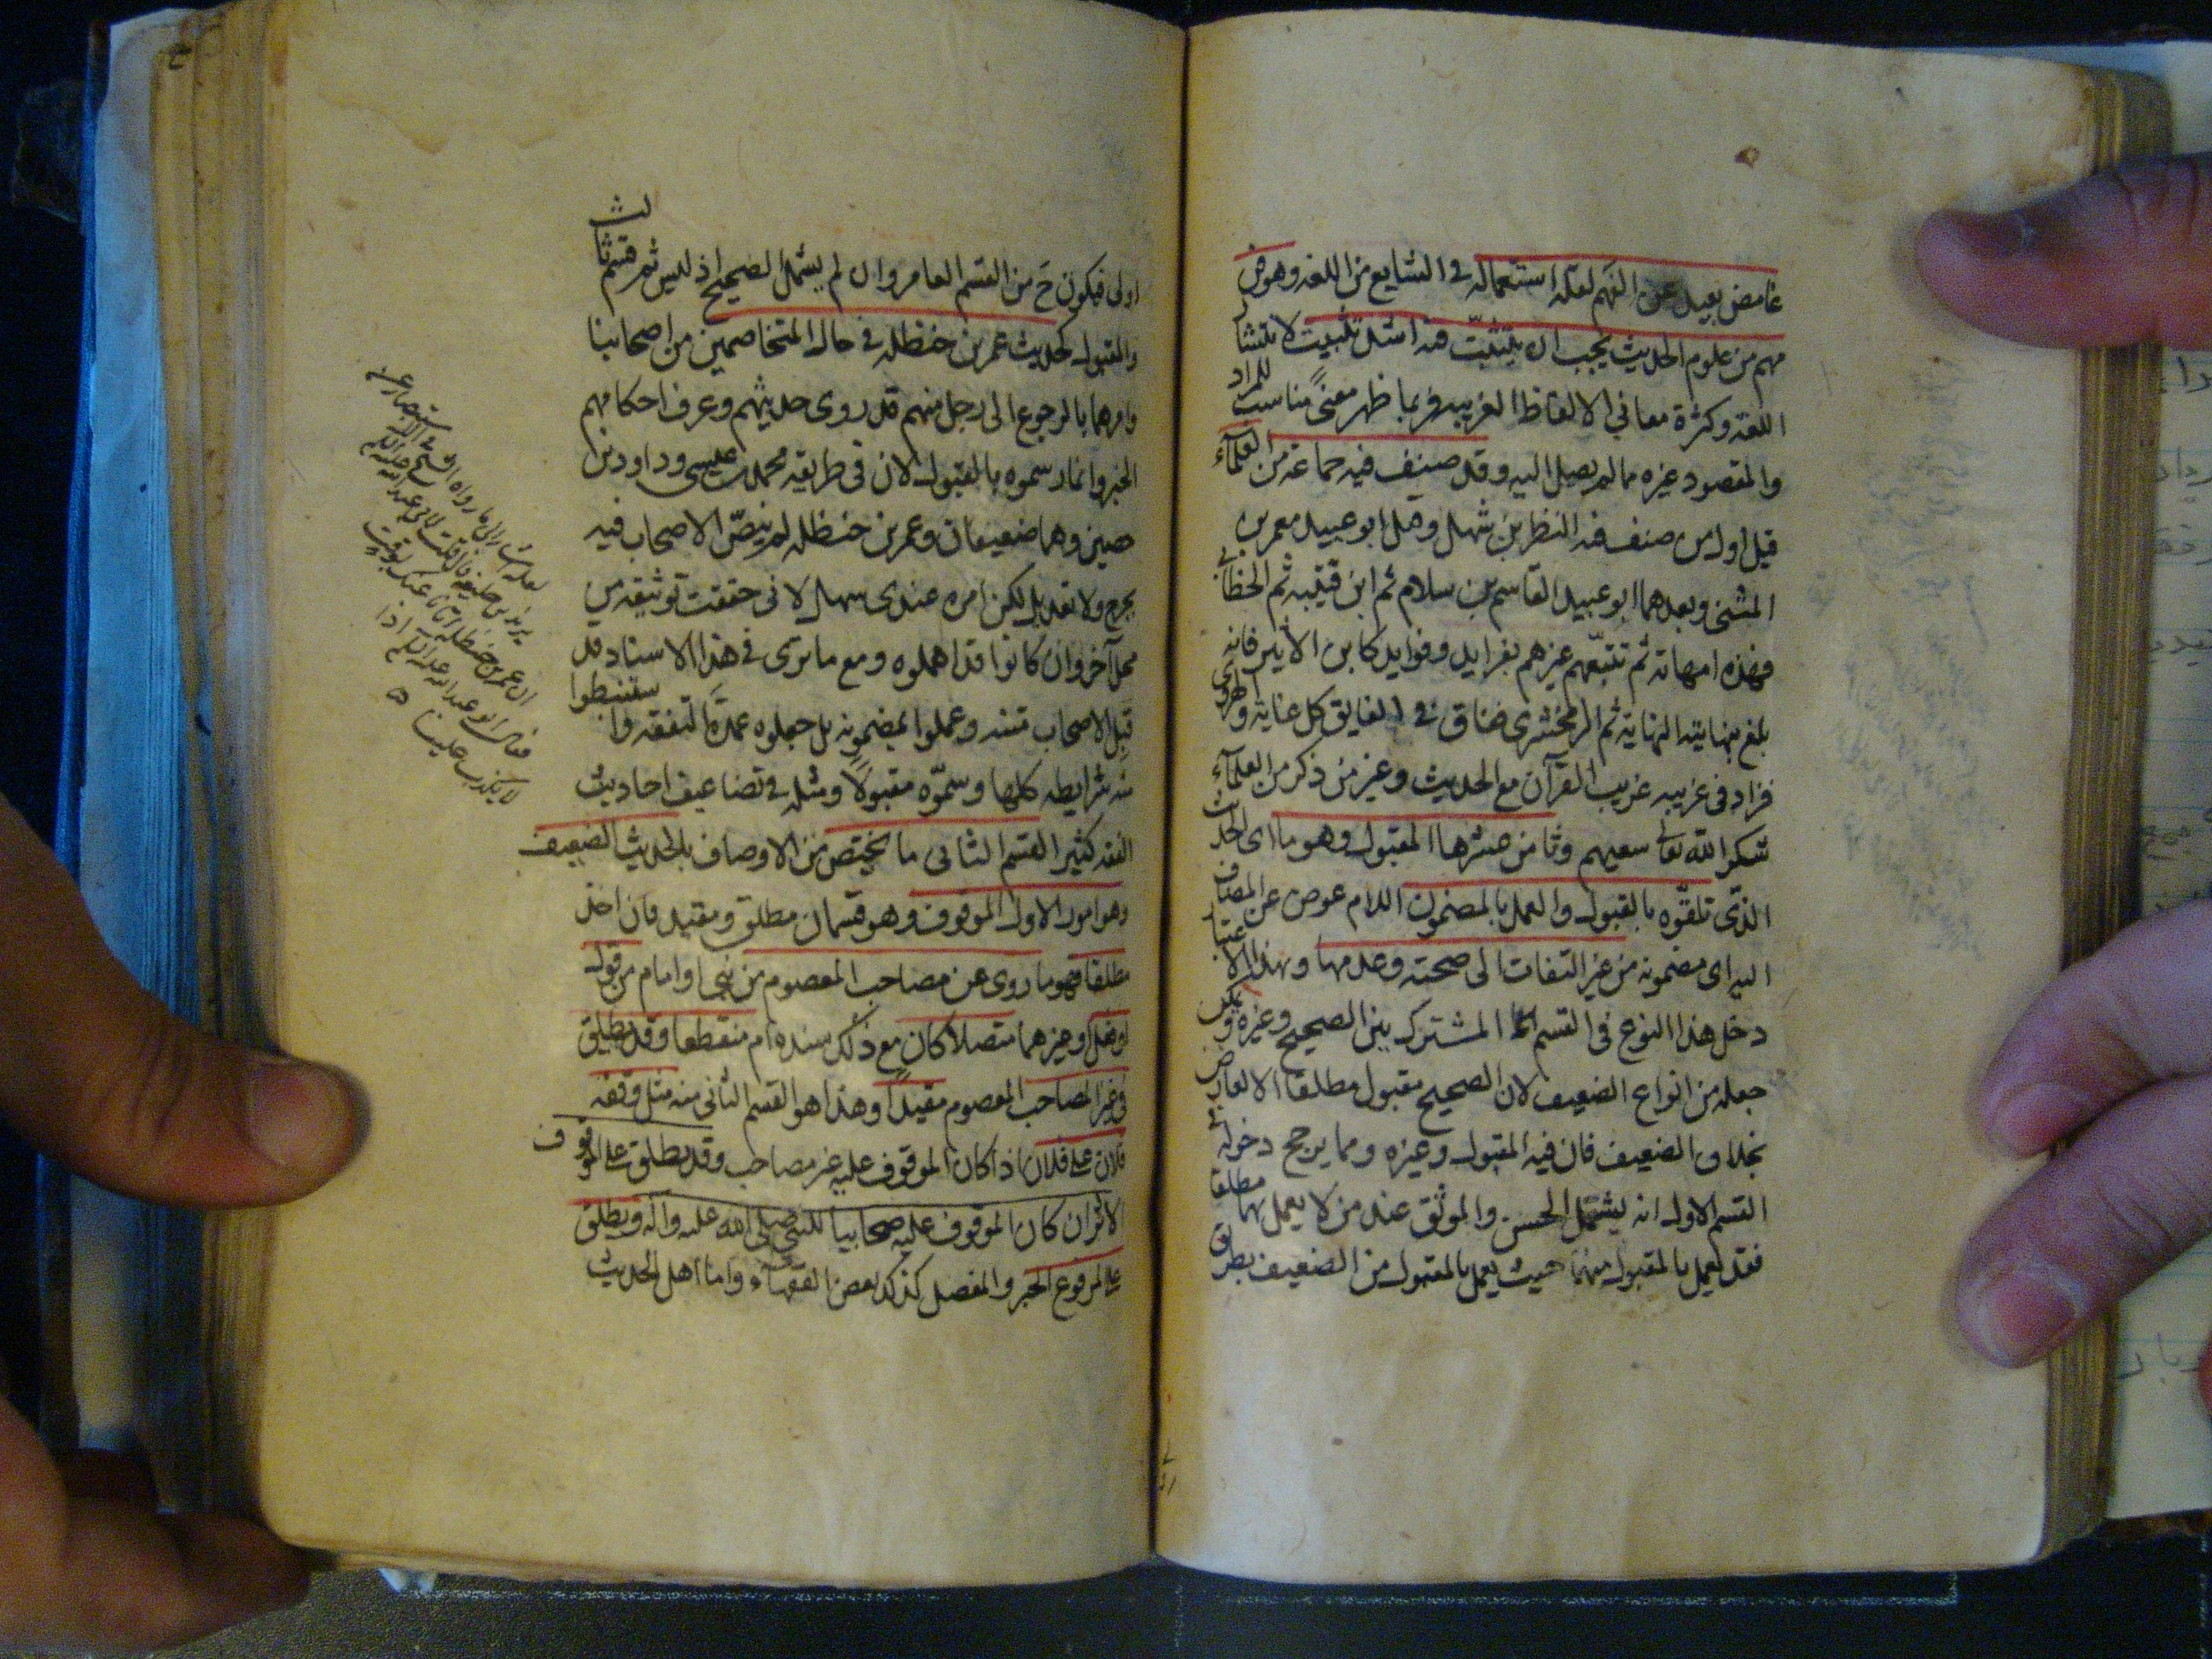 غامض بعيد عن الفهم لقلة استعماله في الشايع من اللغة وهو فن
مهم من علوم الحديث يجب ان يتثبت فيه اشد تثبيت لانتشار
اللغة وكثرة معاني الالفاظ الغريبه فربما ظهر معنى مناسب للمراد
والمقصود غيره مما لم يصل اليه وقد صنف فيه جماعة من العلمآء
قيل اول من صنف فيه النظر بن شميل وقيل ابو عبيد معمر بن
المثنى وبعدهما ابو عبيد القاسم بن سلام ثم ابن قتيبه ثم الخطابي
فهذه امهاته ثم تتبعهم غيرهم بفرايد وفوايد كابن الاثير فانه
بلغ بنهايته النهاية ثم الزمخشري ففاق في الفايق كل غاية والهروي
فزاد في غريبه غريب القرآن مع الحديث وغير من ذكر من العلمآء
شكر الله تعالى سعيهم وثامن عشرها المقبول وهو ما اى الحديث
الذى تلقوه بالقبول والعمل بالمضمون اللام عوض عن المضاف
اليه اى مضمونه من غير التفات الى صحته وعدمها وبهذا الاعتبار
دخل هذا النوع في القسم المشترك بين الصحيح وغيره ويمكن
جعله من انواع الضعيف لان الصحيح مقبول مطلقا الا لعارض
بخلاف الضعيف فان فيه المقبول وغيره ومما يرجح دخوله في
القسم الاول انه يشمل الحسن والموثق عند من لا يعمل بهما مطلقا
فقد يعمل بالمقبول منهما حيث يعمل بالمقبول من الضعيف بطريق
اولى فيكون ح من القسم العام وان لم يشمل الصحيح اذ ليس ثم قسم ثالث
والمقبول كحديث عمر بن حنظله في حال المتخاصمين من اصحابنا
وامرهما بالرجوع الى رجل منهم قد روى حديثهم وعرف احكامهم
الخبر وانما وسموه بالمقبول لان في طريقه محمد بن عيسى وداود بن
حصين وهما ضعيفان وعمر بن حنظله لم ينص الاصحاب فيه
بجرح ولا تعديل لكن امره عندى سهل لانى حققت توثيقه من
محل آخر وان كانوا قد اهملوه ومع ما ترى في هذا الاسناد قد
قبل الاصحاب متنه وعملوا بمضمونه بل جعلوه عمدة التفقه واستنبطوا
منه شرايطه كلها وسموه مقبولا ومثله في تضاعيف احاديث
الفقه كثير القسم الثانى ما يختص من الاوصاف بالحديث الضعيف
وهو امور الاول الموقوف وهو قسمان مطلق ومقيد فان اخذ
مطلقا فهو ما روى عن مصاحب المعصوم من نبى او امام من قول
او فعل او غيرهما متصلا كان مع ذلك سنده ام منقطعا وقد يطلق
في غير المصاحب المعصوم مقيدا وهذا هو القسم الثانى منه مثل وقفه
فلان على فلان اذا كان الموقوف عليه غير مصاحب وقد يطلق على الموقوف
الاثر ان كان الموقوف عليه صحابيا للنبى صلى الله عليه وآله ويطلق
على المرفوع الخبر والمفصل كذلك بعض الفقهآء واما اهل الحديث
يزيد بن خليفه قال قلت لابى عبد الله عليه السلام
ان عمر بن حنظله اتانا عنك بوقت
فقال ابو عبد الله عليه السلام اذا
لا يكذب علينا